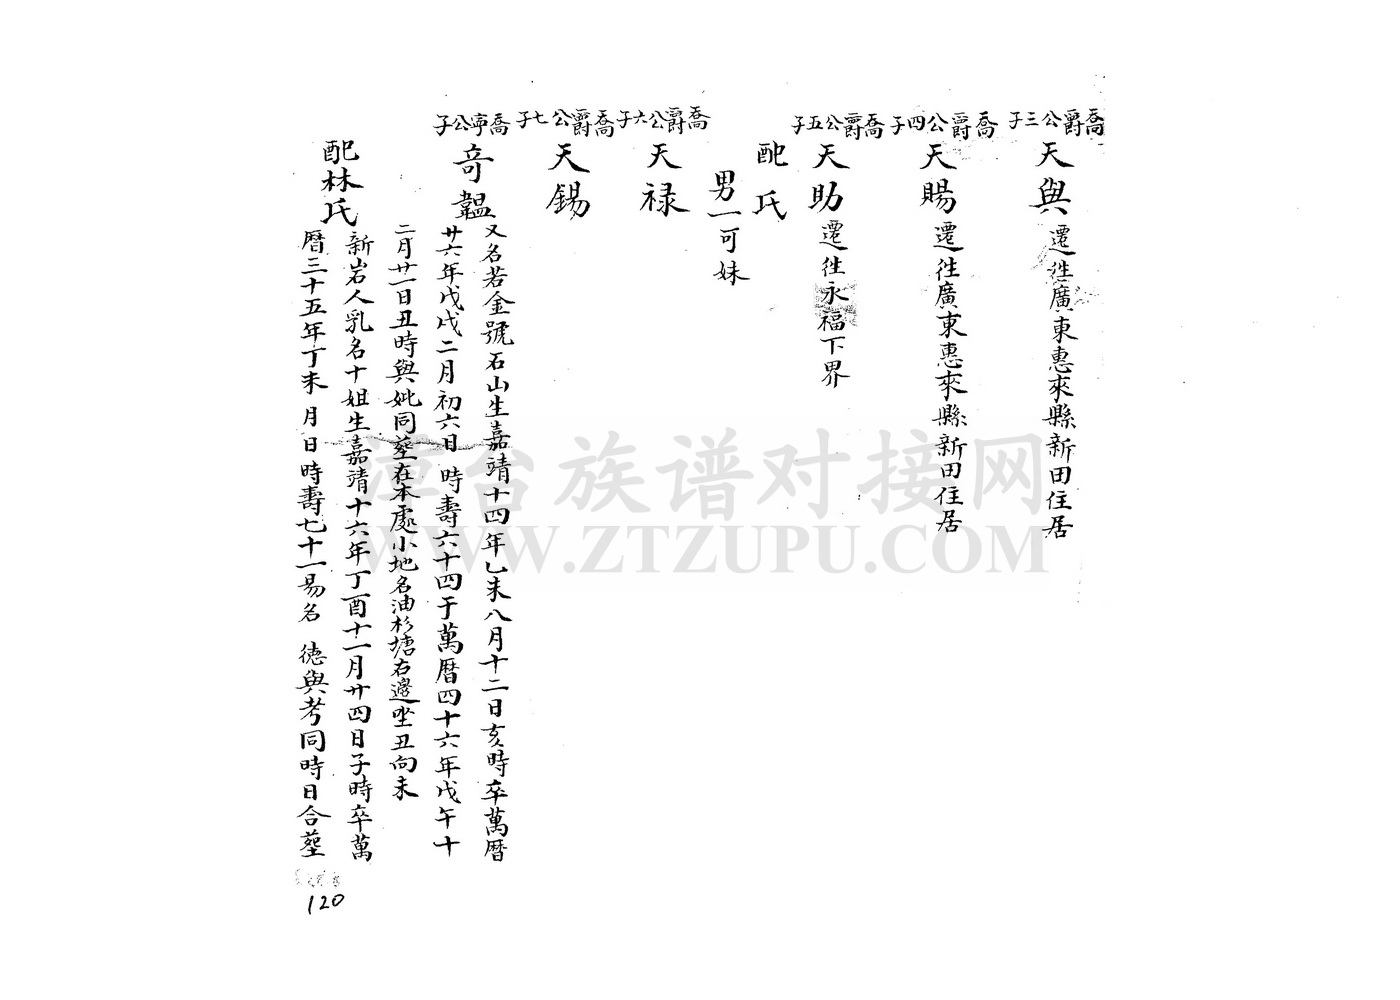 喬爵公三子
天與
遷徃廣東惠來縣新田住居
喬爵公四子
天賜
遷徃廣東惠來縣新田住居
喬爵公五子
天助
遷徃永福下界
配氏
男一可妹
喬爵公六子
天禄
喬爵公七子
天錫
喬寧公子
奇韞
又名若金號石山生嘉靖十四年乙未八月十二日亥時卒萬曆
廿六年戊戌二月初六日時壽六十四于萬曆四十六年戊午十
二月廿一日丑時與妣同塟在本處小地名油杉塘右邊坐丑向未
配林氏
新岩人乳名十姐生嘉靖十六年丁酉十一月廿四日子時卒萬
曆三十五年丁未月日時壽七十一易名 德與考同時日合塟
120
漳台族谱对接网
WWW.ZTZUPU.COM